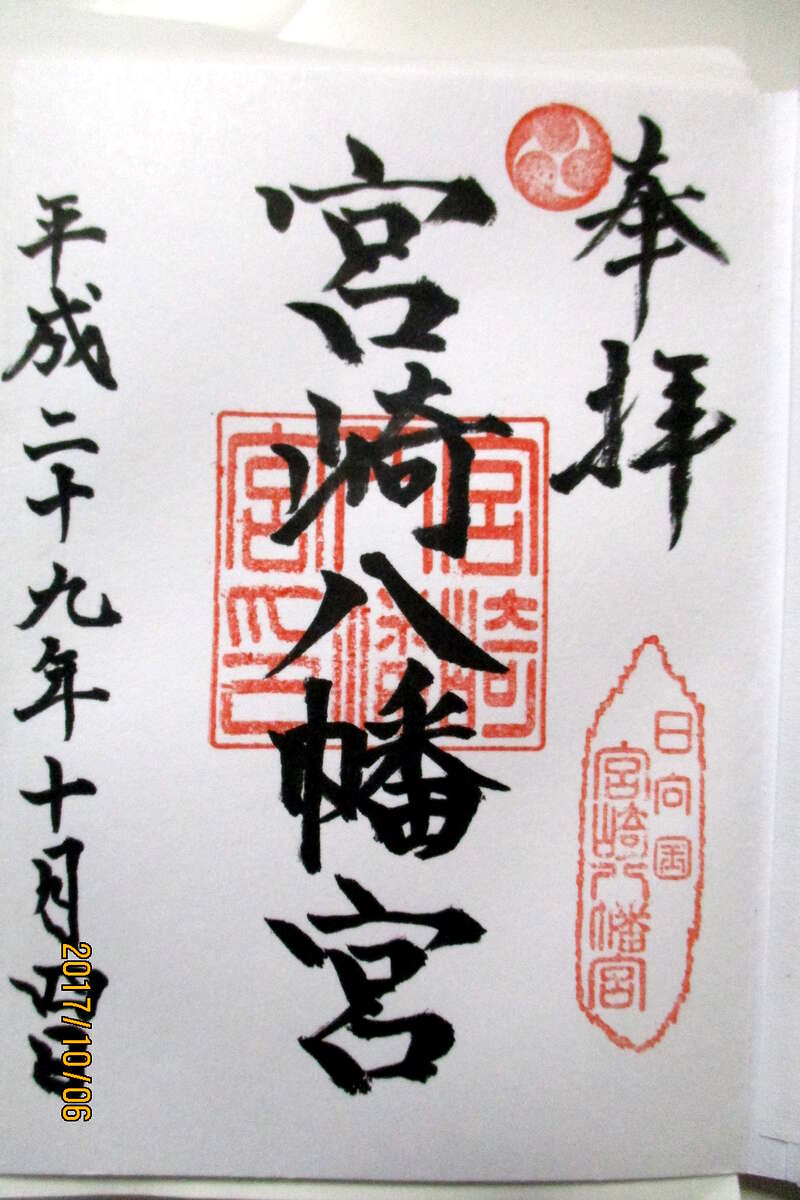 奉拝
日向国
宮崎八幡宮
宮崎八幡宮
宮崎八幡宮印
平成二十九年十月四日
2017/10/06